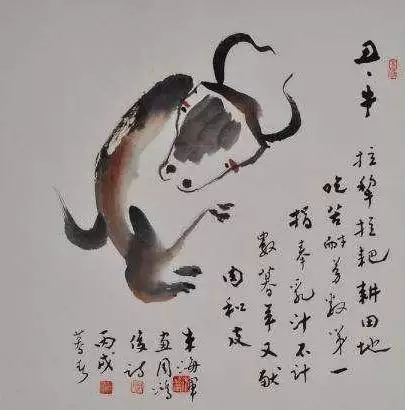 丑、牛
拉犁拉耙耕田地
吃苦耐劳数第一
奉乳汁不计
数暮年又献
肉和皮
海军
画周鸿
俊诗
丙戌
暮春